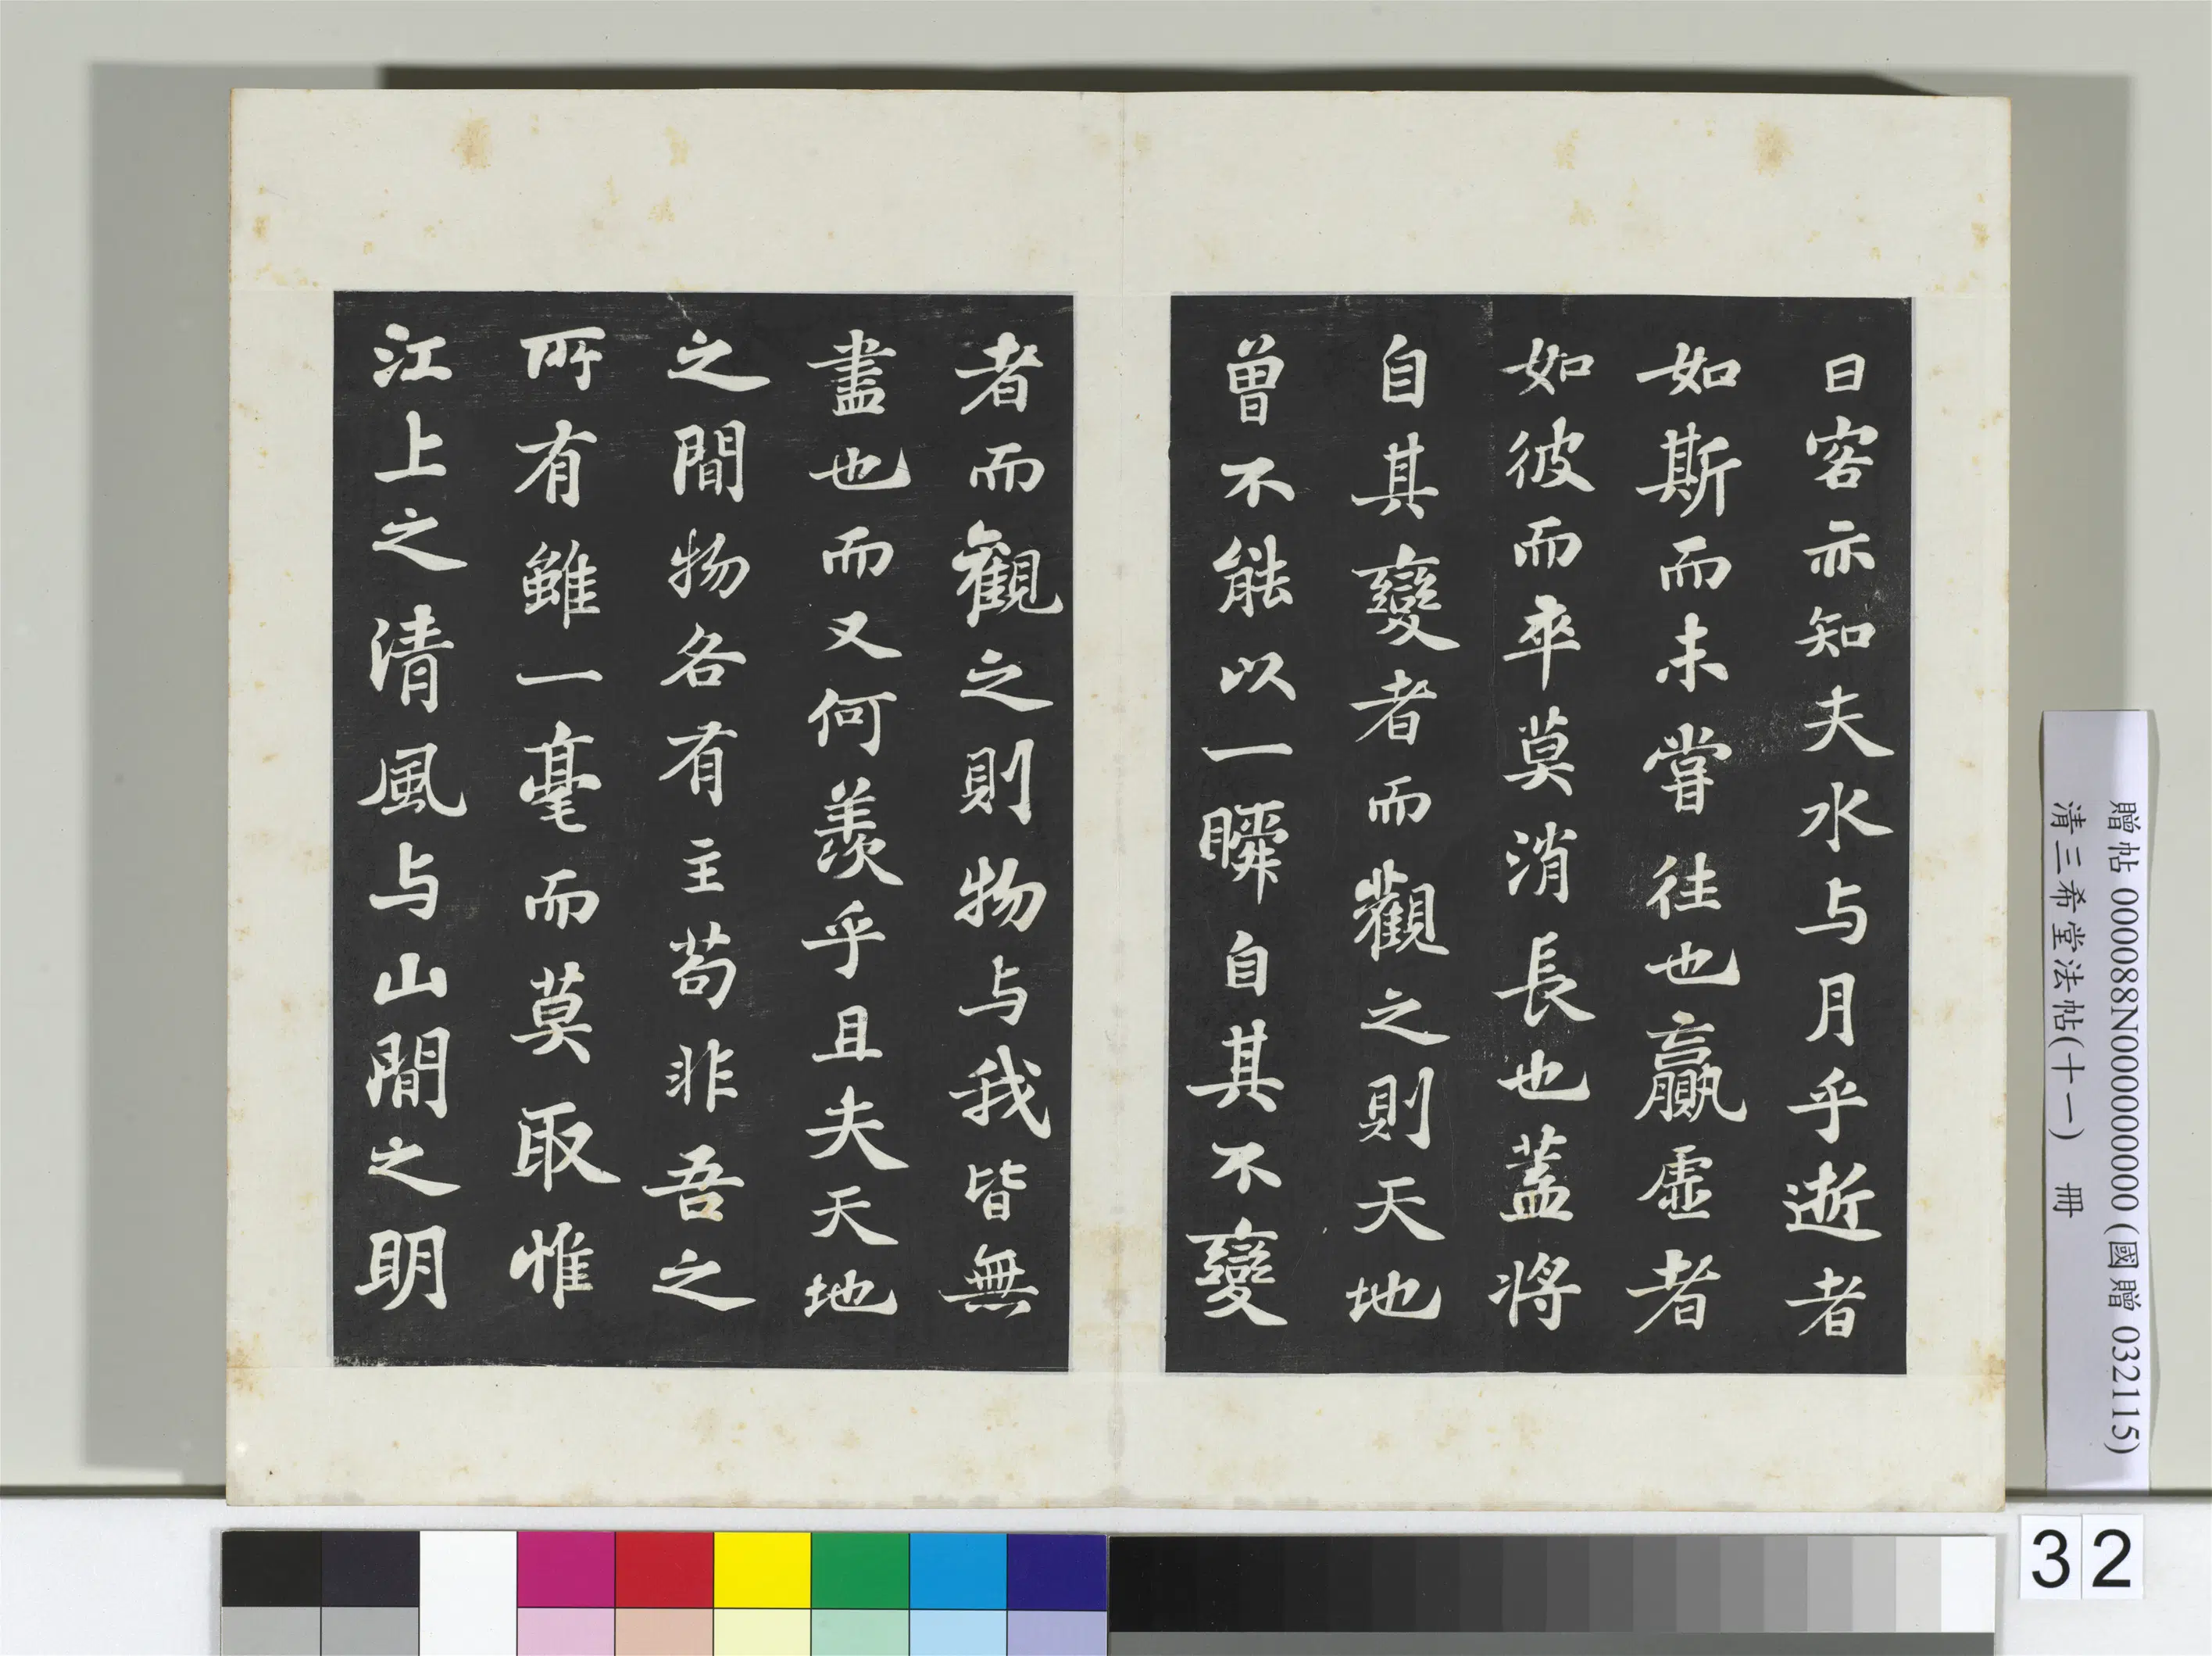 曰客亦知夫水与月乎逝者
如斯而未甞往也贏虛者
如彼而卒莫消長也蓋將
自其變者而觀之則天地
曾不能以一瞬自其不變
者而觀之則物与我皆無
盡也而又何羨乎且夫天地
之間物各有主苟非吾之
所有雖一毫而莫取惟
江上之清風与山間之明
贈帖 000088N000000000 (國贈 032115)
清三希堂法帖(十一) 冊
32